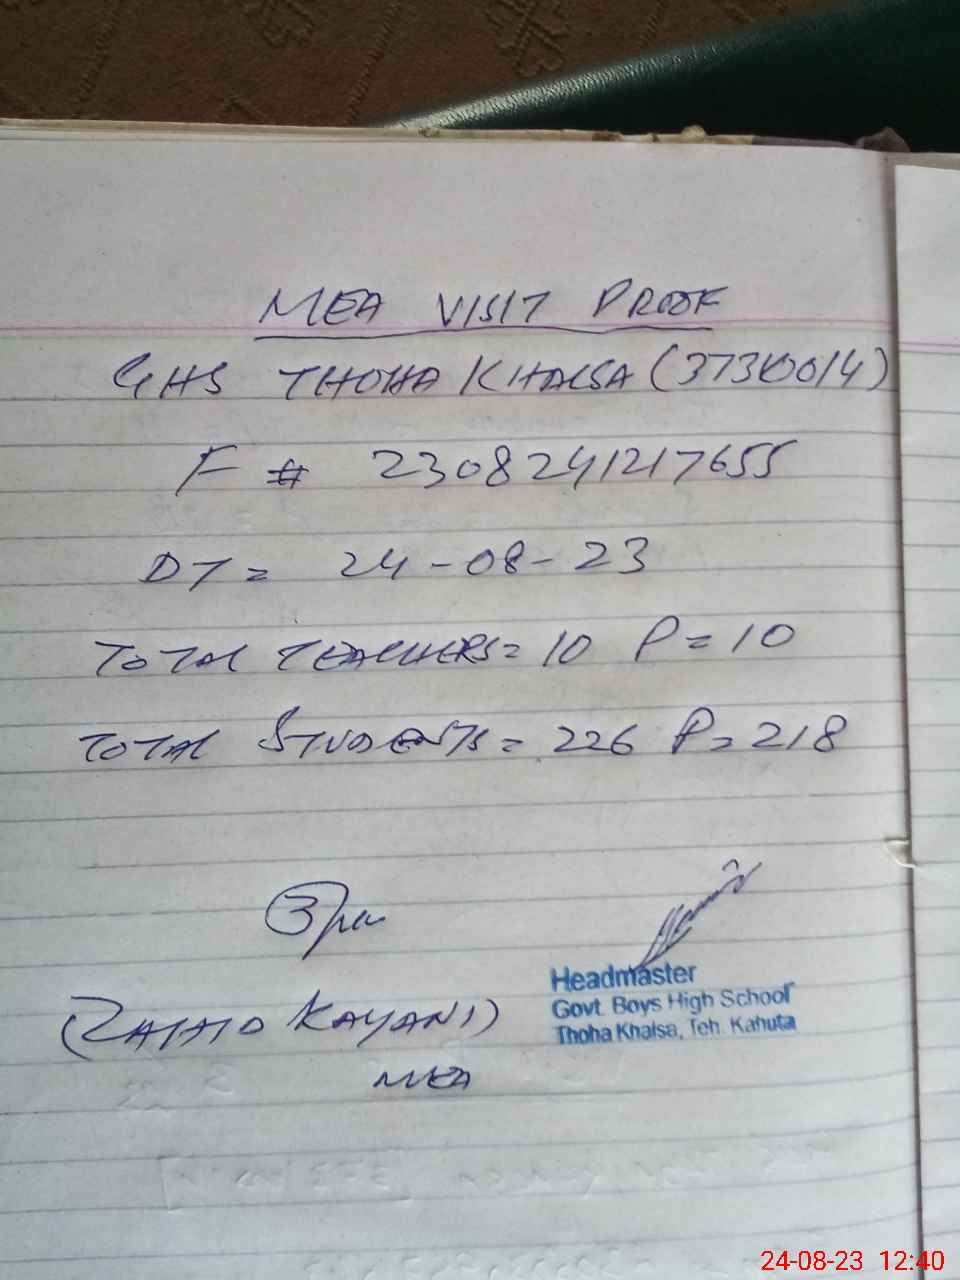 MEA VISIT PROOF
GHS THOHA KHALSA (37310014)
F # 2308241217655
DT = 24-08-23
TOTAL TEACHERS = 10 P = 10
TOTAL STUDENTS = 226 P = 218
Headmaster
Govt. Boys High School
Thoha Khalsa, Teh. Kahuta
KAYANI)
MEA
24-08-23 12:40